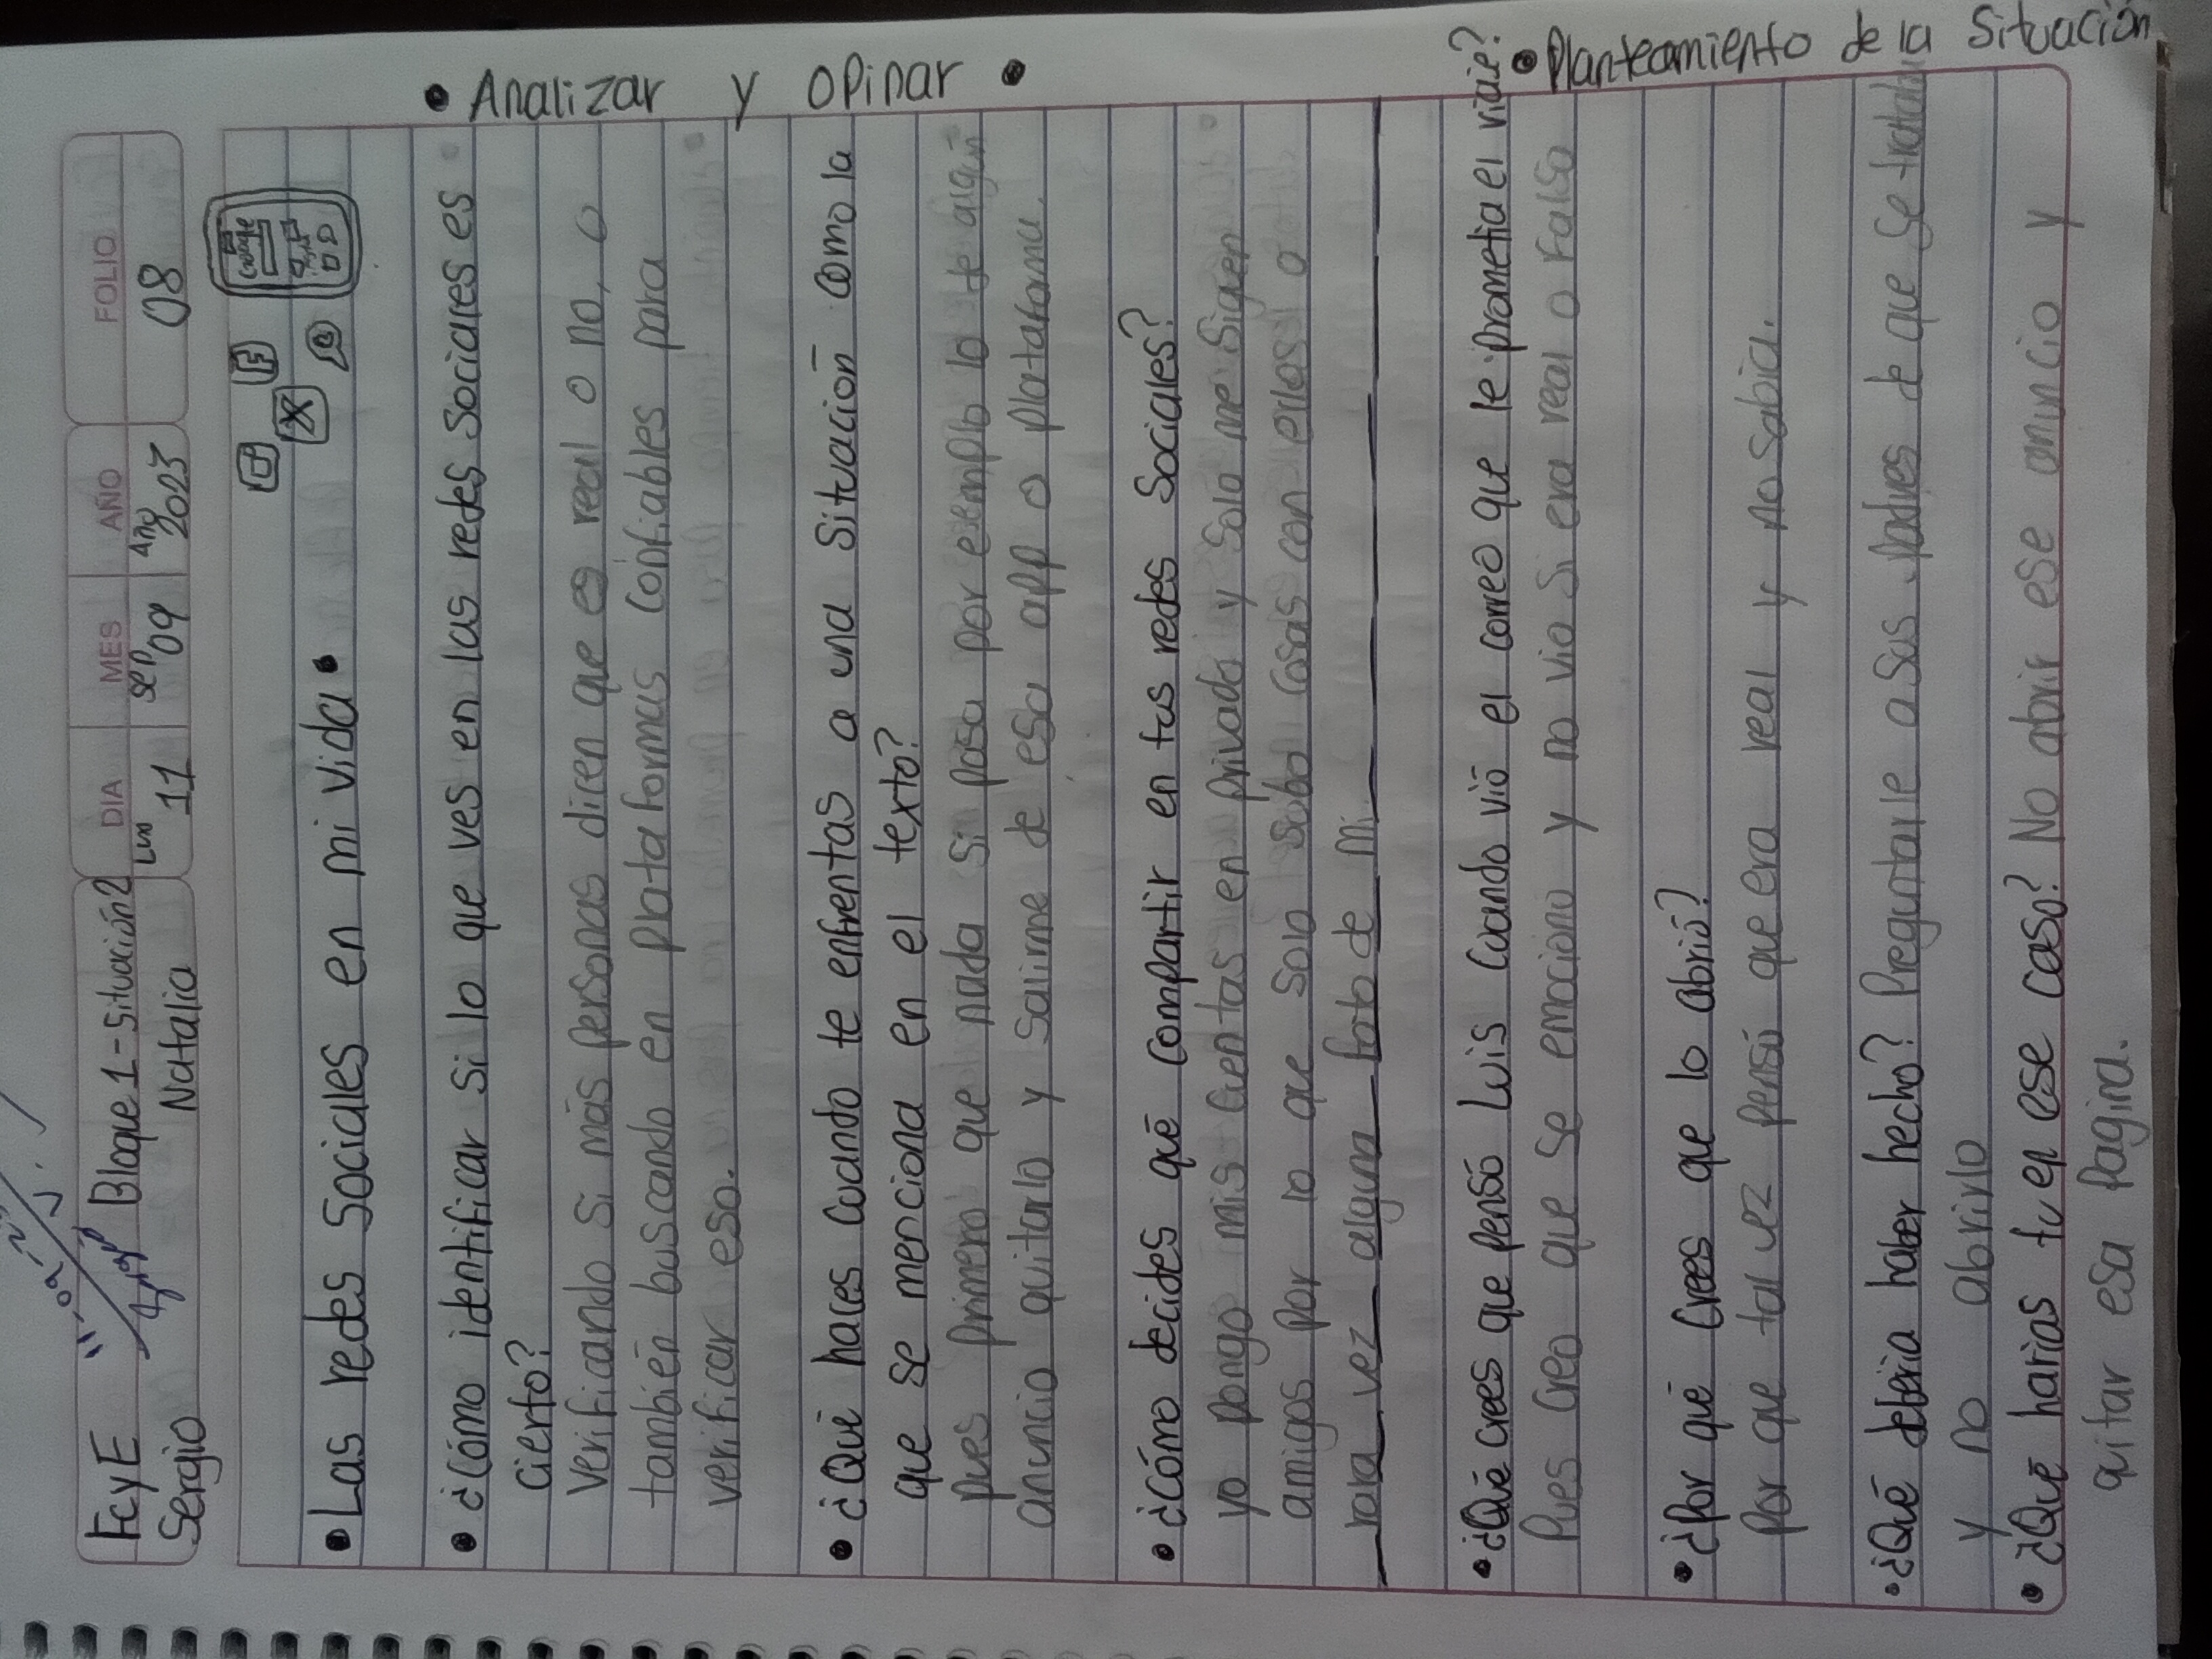 FCyE
Bloque 1 - Situación 2
Sergio
Natalia
DIA
MES
AÑO
FOLIO
Lun
11
sep
09
Año
2023
08
Google
• Las redes Sociales en mi vida •
• Analizar y opinar •
• ¿Cómo identificar si lo que ves en las redes Sociales es
cierto?
Verificando si más personas dicen que es real o no, o
también buscando en plataformas confiables para
verificar eso.
• ¿Qué haces cuando te enfrentas a una Situación como la
que se menciona en el texto?
pues primero que nada si pasa por esemplo lo de algún
anuncio quitarlo y salirme de esa app o plataforma.
• ¿Cómo decides qué compartir en tus redes Sociales?
yo pongo mis cuentas en privado y solo me siguen
amigos por lo que solo subo cosas con ellos o
rara vez alguna foto de mi.
• Planteamiento de la Situación
• ¿Qué crees que pensó Luis cuando vió el correo que le prometia el viaje?
Pues creo que se emociono y no vio si era real o falso
• ¿Por qué crees que lo abrió?
Por que tal vez pensó que era real y no sabia.
• ¿Qué debería haber hecho? Preguntarle a sus padres de que se trataba
y no abrirlo
• ¿Qué harías tu en ese caso? No abrir ese anuncio y
quitar esa pagina.